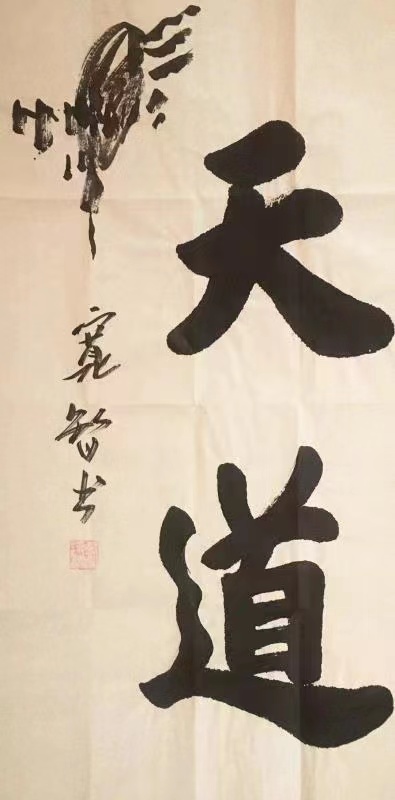 天道
寬智书